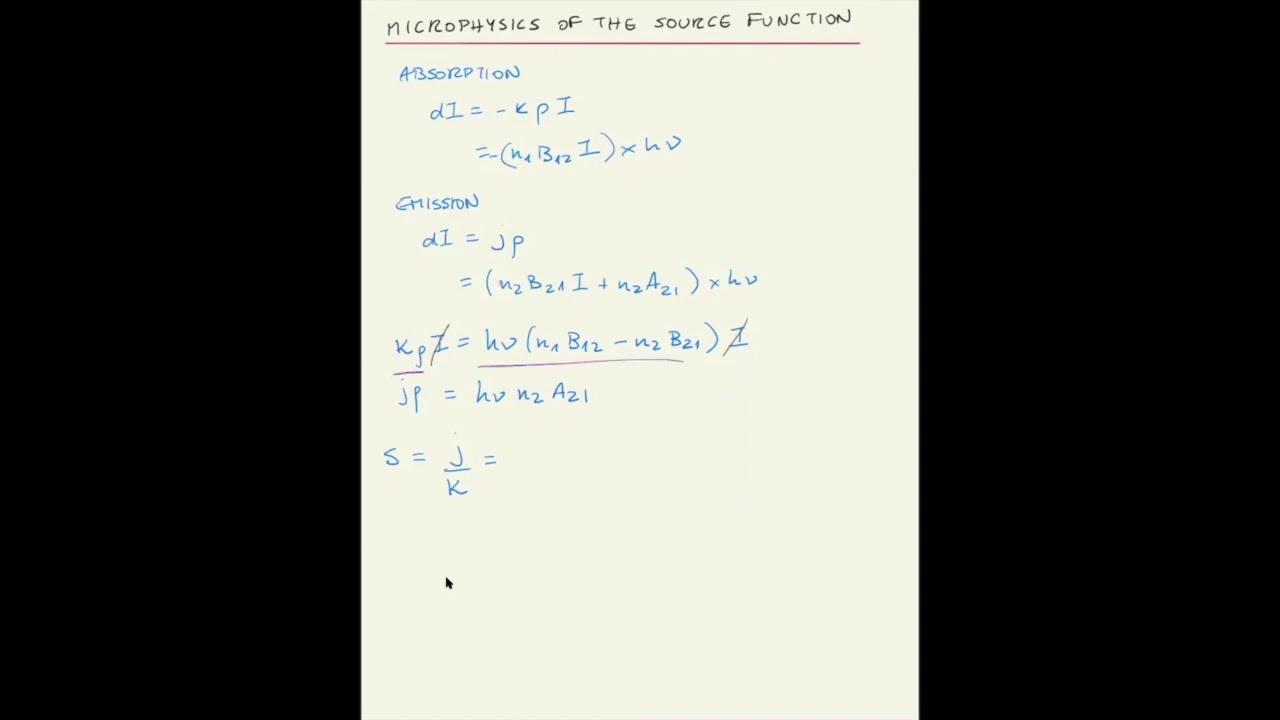 MICROPHYSICS OF THE SOURCE FUNCTION
ABSORPTION
dI = - κ ρ I
= -(n₁ B₁₂ I) × hν
EMISSION
dI = jρ
= (n₂ B₂₁ I + n₂ A₂₁) × hν
κ ρ I = hν (n₁ B₁₂ - n₂ B₂₁) I
jρ = hν n₂ A₂₁
S = j/κ =